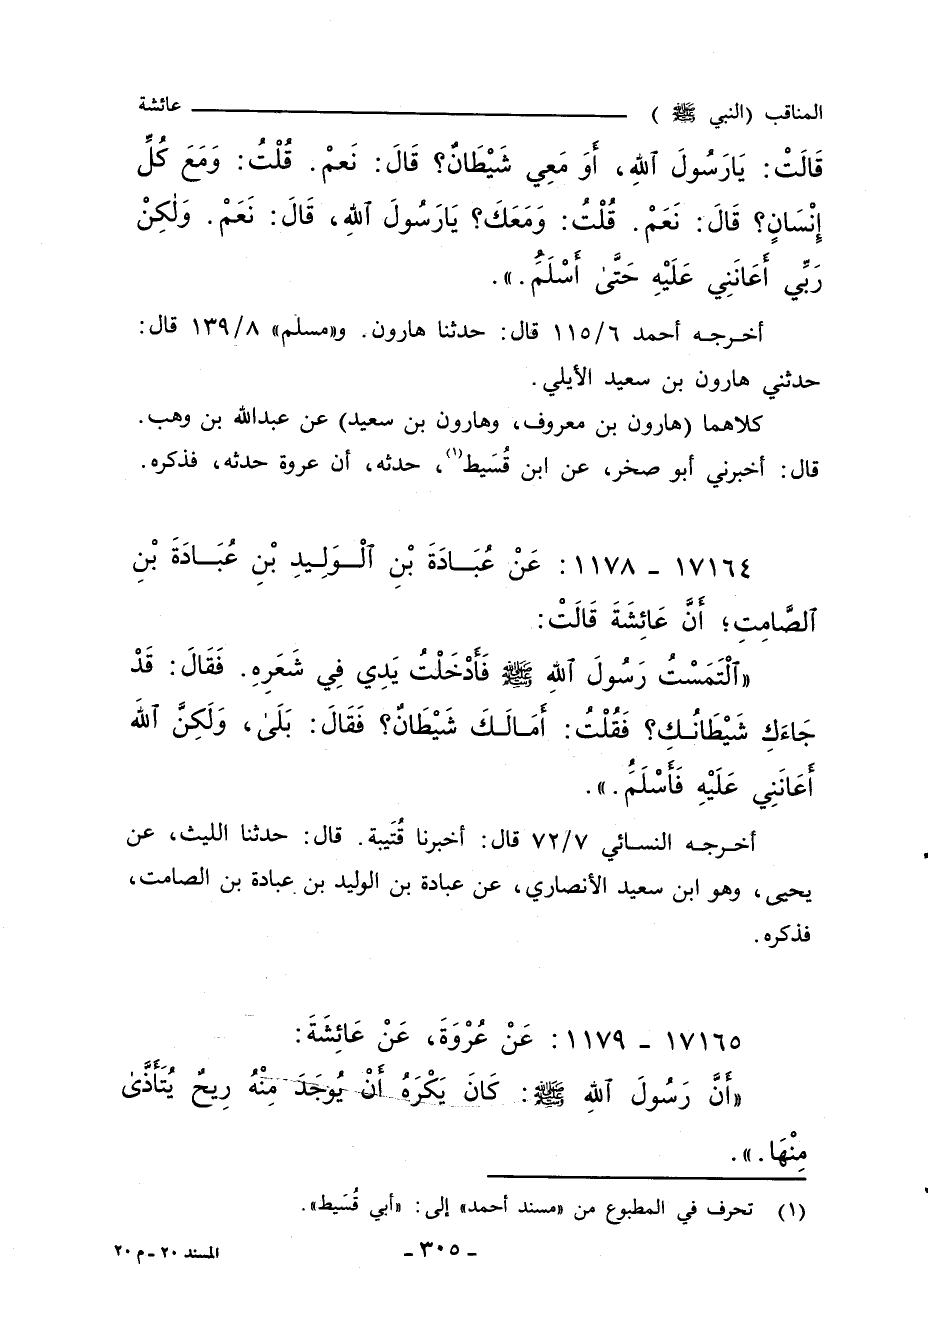 المناقب (النبي ﷺ) عائشة
قَالَتْ: يَارَسُولَ ٱللهِ، أَوَ مَعِي شَيْطَانٌ؟ قَالَ: نَعمْ. قُلْتُ: وَمَعَ كُلِّ
إِنْسَانٍ؟ قَالَ: نَعَمْ. قُلْتُ: وَمَعَكَ؟ يَارَسُولَ ٱللهِ، قَالَ: نَعَمْ. وَلٰكِنْ
رَبِّي أَعَانَنِي عَلَيْهِ حَتَّىٰ أَسْلَمَُ.».
أخـرجـه أحمد ٦/١١٥ قال: حدثنا هارون. و«مسلم» ٨/١٣٩ قال:
حدثني هارون بن سعيد الأيلي.
كلاهما (هارون بن معروف، وهارون بن سعيد) عن عبدالله بن وهب.
قال: أخبرني أبو صخر، عن ابن قُسَيط(١)، حدثه، أن عروة حدثه، فذكره.
١٧١٦٤ - ١١٧٨: عَنْ عُبَـادَةَ بْنِ ٱلْـوَلِـيدِ بْنِ عُبَـادَةَ بْنِ
ٱلصَّامِتِ؛ أَنَّ عَائِشَةَ قَالَتْ:
«ٱلْتَمَسْتُ رَسُولَ ٱللهِ ﷺ فَأَدْخَلْتُ يَدِي فِي شَعَرِهِ. فَقَالَ: قَدْ
جَاءَكِ شَيْطَانُـكِ؟ فَقُلْتُ: أَمَـالَـكَ شَيْطَانٌ؟ فَقَالَ: بَلَىٰ، وَلَكِنَّ ٱللهَ
أَعَانَنِي عَلَيْهِ فَأَسْلَمَُ.».
أخـرجـه النسـائي ٧/٧٢ قال: أخبرنا قُتَيبة. قال: حدثنا الليث، عن
يحيى، وهو ابن سعيد الأنصاري، عن عبادة بن الوليد بن عبادة بن الصامت،
فذكره.
١٧١٦٥ - ١١٧٩: عَنْ عُرْوَةَ، عَنْ عَائِشَةَ:
«أَنَّ رَسُولَ ٱللهِ ﷺ: كَانَ يَكْرَهُ أَنْ يُوجَدَ مِنْهُ رِيحٌ يُتَأَذَّىٰ
مِنْهَا.».
(١) تحرف في المطبوع من «مسند أحمد» إلى: «أبي قُسَيط».
- ٣٠٥ -
المسند ٢٠ - م ٢٠